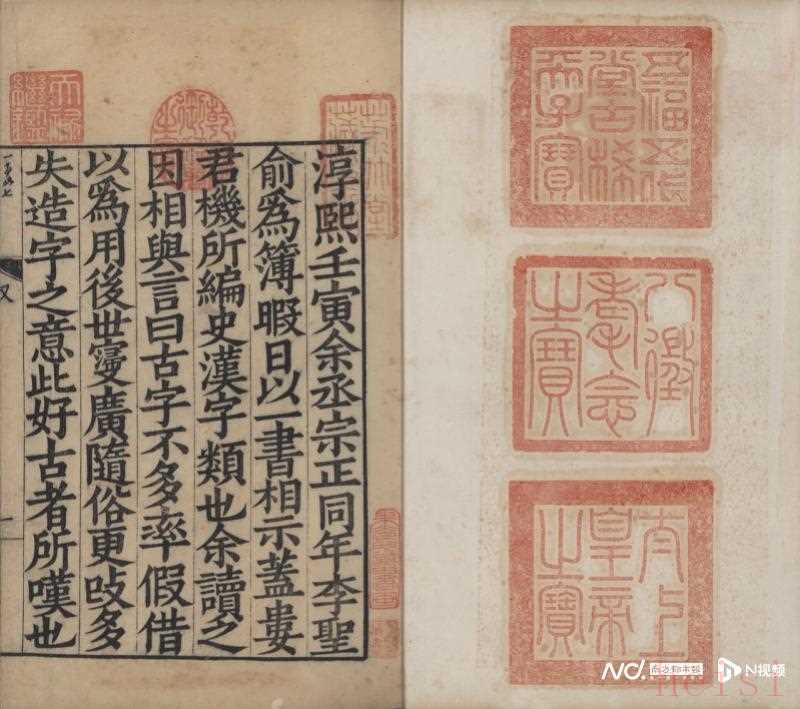 五福五代
堂古稀
天子寶
八徵
耄念
之寶
太上
皇帝
之寶
淳熙壬寅余丞宗正同年李聖
俞爲簿暇日以一書相示蓋婁
君機所編史漢字類也余讀之
因相與言曰古字不多率假借
以爲用後世寖廣隨俗更攺多
失造字之意此好古者所嘆也
天祿
繼鑑
乾隆
御覽
之寶
一
南方都市报
N视频